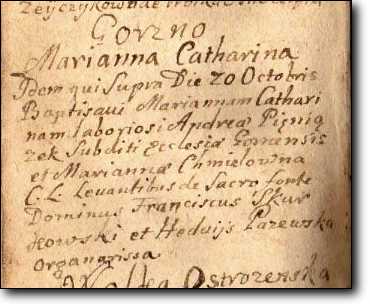 Gorzno
Marianna Catharina
Idem qui Supra Die 20 Octobris
Baptisavi Mariannam Cathari
nam laboriosi Andreæ Pieniq
zek Subditi Ecclesiæ
et Mariannæ Chmielowna
C. L. Levantibus de Sacro fonte
Dominus Franciscus Skur
kowski et Hedvijs Lazewska
Organarissa
Ostrozenska